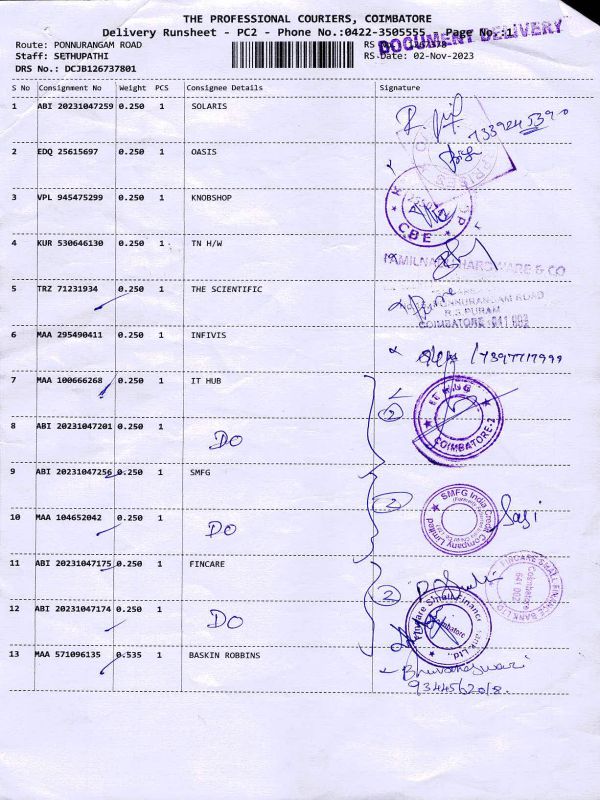 THE PROFESSIONAL COURIERS, COIMBATORE
Delivery Runsheet - PC2 - Phone No.:0422-3505555 Page No.:1
DOCUMENT DELIVERY
Route: PONNURANGAM ROAD
Staff: SETHUPATHI
RS Date: 02-Nov-2023
DRS No.: DCJB126737801
S No Consignment No Weight PCS Consignee Details Signature
1 ABI 20231047259 0.250 1 SOLARIS
7339245390
2 EDQ 25615697 0.250 1 OASIS
3 VPL 945475299 0.250 1 KNOBSHOP
CBE
4 KUR 530646130 0.250 1 TN H/W
TAMILNADU HARDWARE & CO
5 TRZ 71231934 0.250 1 THE SCIENTIFIC
PONNURANGAM ROAD
R.S PURAM
COIMBATORE 641 002
6 MAA 295490411 0.250 1 INFIVIS
/7397717999
7 MAA 100666268 0.250 1 IT HUB
2
COIMBATORE-2
8 ABI 20231047201 0.250 1
DO
9 ABI 20231047256 0.250 1 SMFG
2
SMFG India Credit Company Limited
Sasi
10 MAA 104652042 0.250 1
DO
11 ABI 20231047175 0.250 1 FINCARE
2
FINCARE SMALL FINANCE BANK LTD
Coimbatore
641 002
12 ABI 20231047174 0.250 1
DO
Fincare Small Finance Bank Ltd.
Coimbatore
13 MAA 571096135 0.535 1 BASKIN ROBBINS
Bhuvaneswari
9344562018.